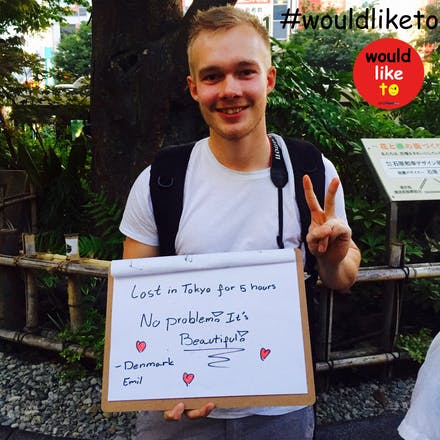 #wouldliketo
would
like
to
Lost in Tokyo for 5 hours
No problem! It's
Beautiful!
- Denmark
Emil